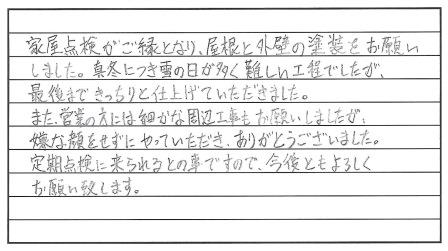 家屋点検がご縁となり、屋根と外壁の塗装をお願い
しました。真冬につき雪の日が多く難しい工程でしたが、
最後まできっちりと仕上げていただきました。
また、営業の方には細かな周辺工事もお願いしましたが、
嫌な顔をせずにやっていただき、ありがとうございました。
定期点検に来られるとの事ですので、今後ともよろしく
お願い致します。